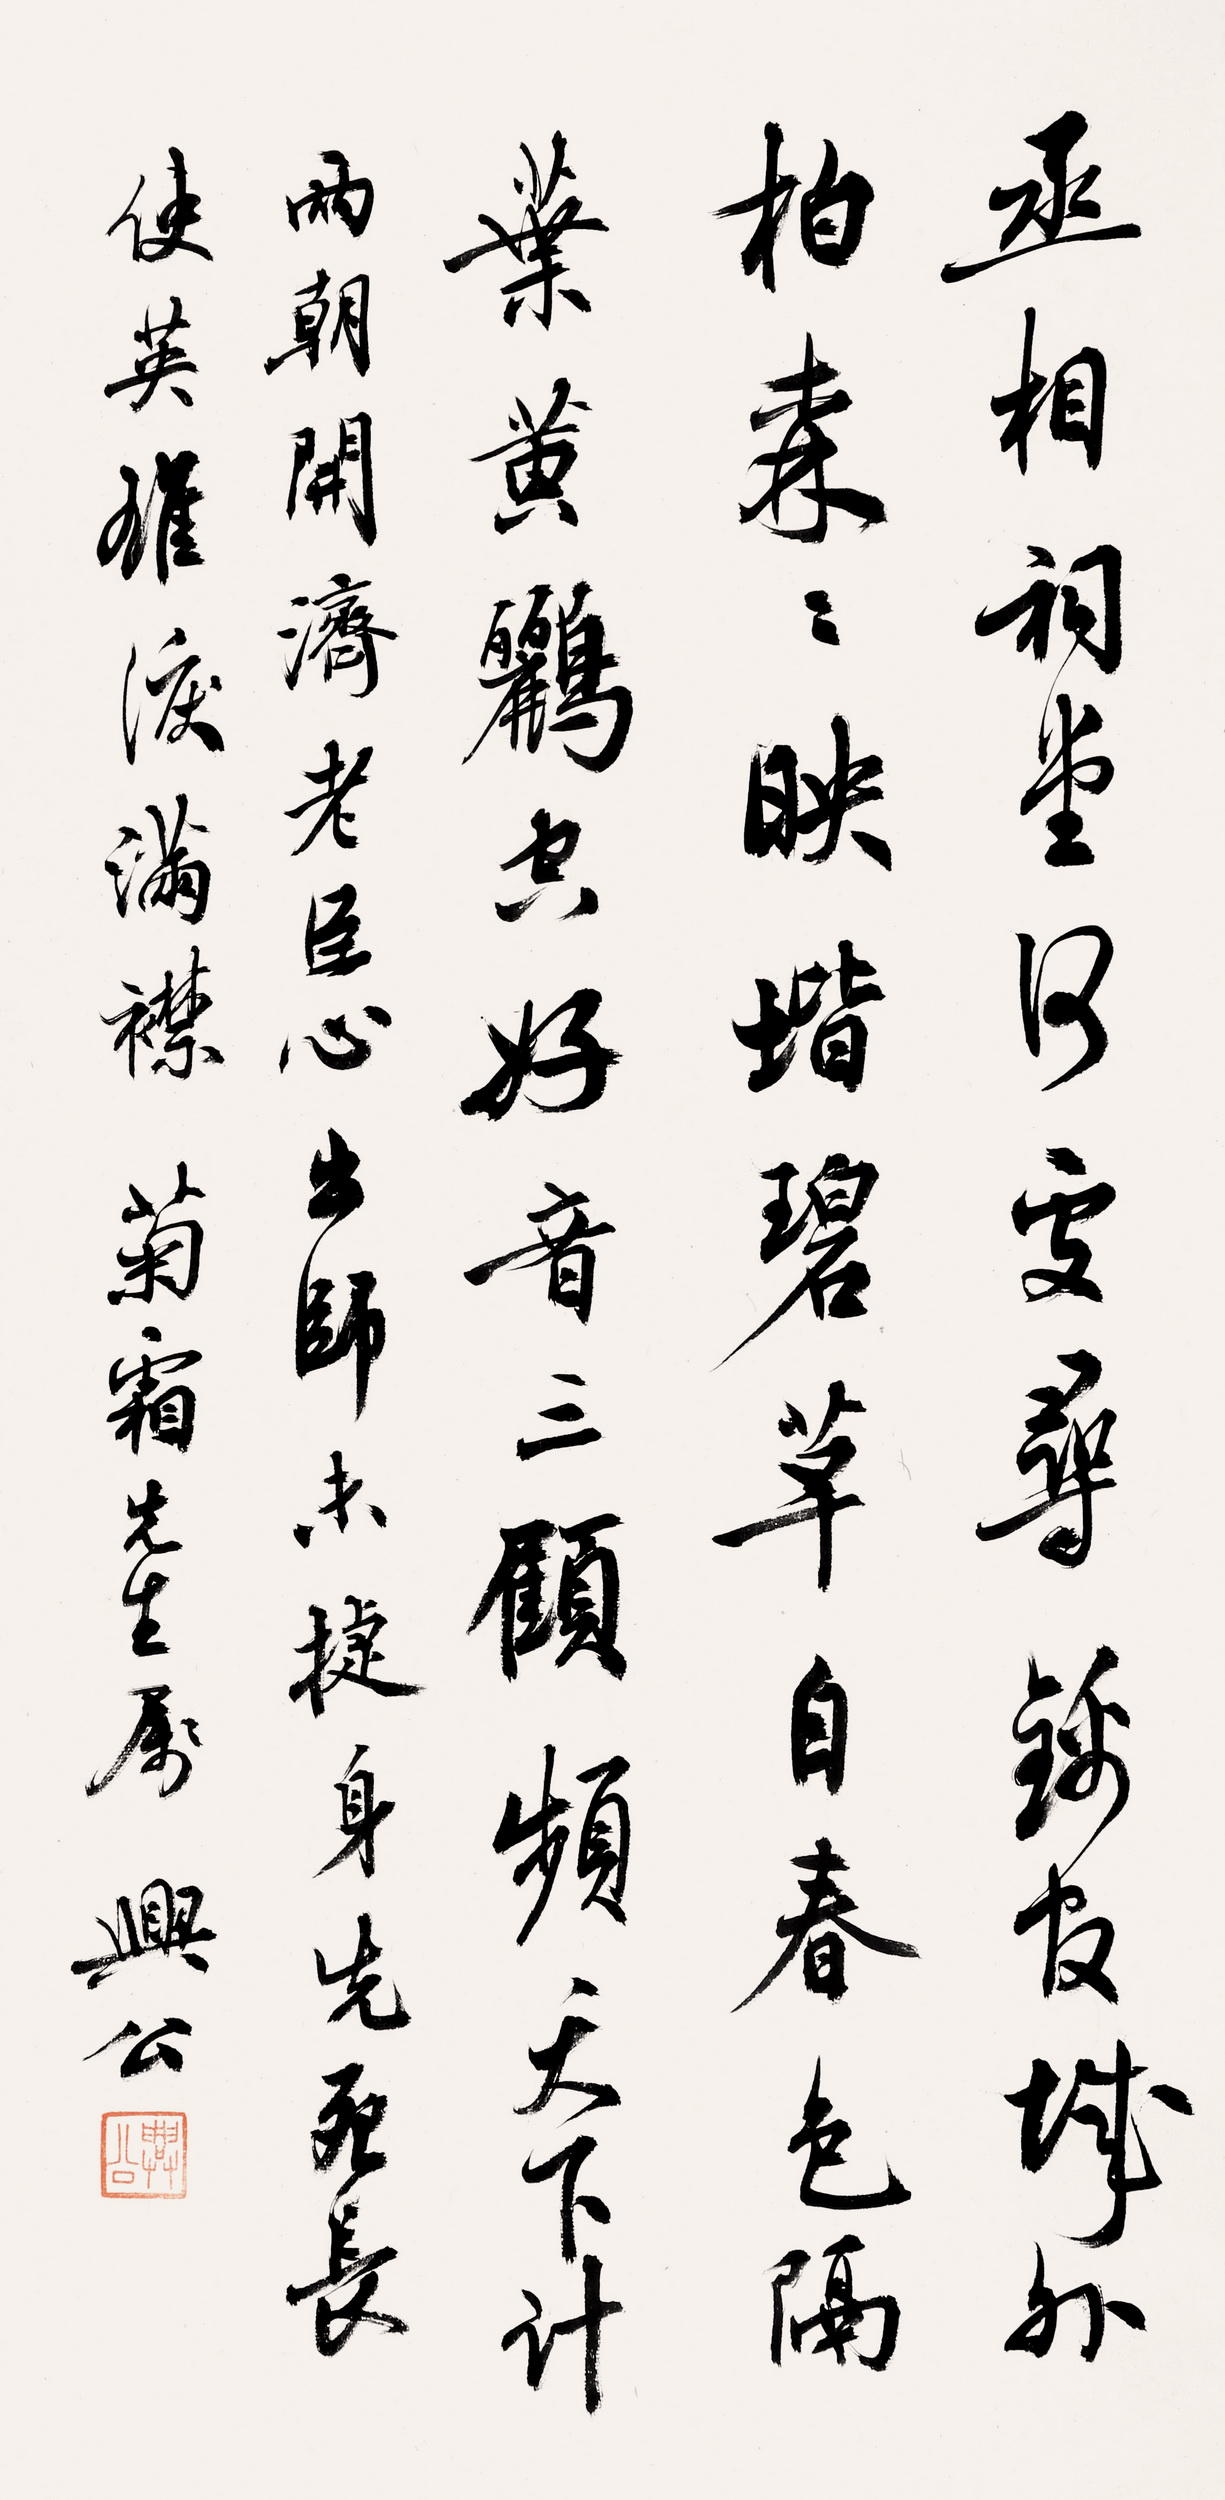 丞相祠堂何處尋錦官城外
柏森〻映堦碧草自春色隔
葉黃鸝空好音三顧頻天下計
兩朝開濟老臣心出師未捷身先死長
使英雄淚滿襟 菊霜先生属 興公
興公